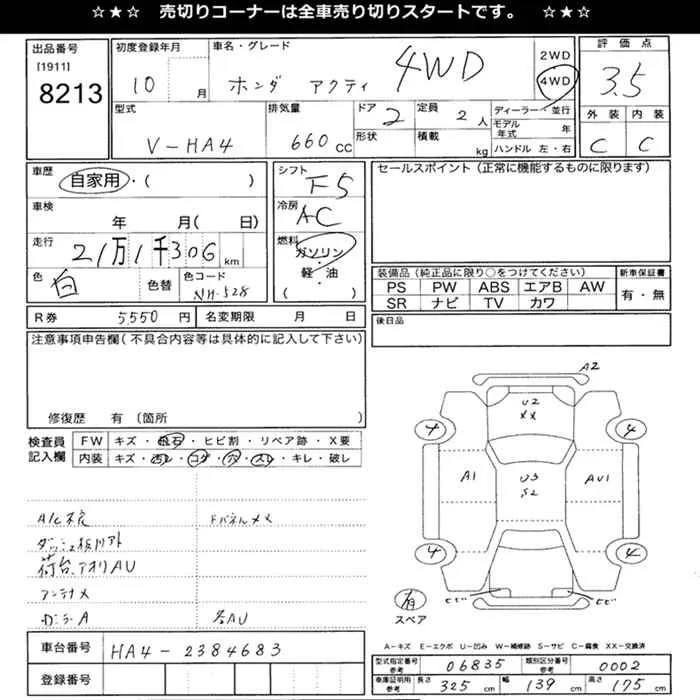 ☆★☆ 売切りコーナーは全車売り切りスタートです。 ☆★☆
出品番号
[1911]
8213
初度登録年月
10 月
車名・グレード
ホンダ アクティ 4WD
2WD
4WD
評価点
3.5
外装 内装
C C
型式
V-HA4
排気量
660 cc
ドア 2
形状
定員 2 人
積載 kg
ディーラー・並行
モデル年式 年
ハンドル 左・右
車歴
自家用・( )
車検
年 月( 日)
走行
21万1千306 km
色
白
色替
色コード
NH-528
シフト
F5
冷房
AC
燃料
ガソリン・
軽・油
( )
セールスポイント(正常に機能するものに限ります)
装備品(純正品に限り○をつけてください)
PS PW ABS エアB AW
SR ナビ TV カワ
新車保証書
有・無
R券 5,550 円
名変期限 月 日
後日品
注意事項申告欄(不具合内容等は具体的に記入して下さい)
修復歴 有〔箇所 〕
検査員
記入欄
FW キズ・飛石・ヒビ割・リペア跡・X要
内装 キズ・汚レ・コゲ・穴・スレ・キレ・破レ
A/C不良
ダッシュ板
荷台、アオリAU
アンテナメ
A
各AU
A2
U2
XX
4 4
A1
U3
S2
AU1
4 4
有
スペア
ヒビ ヒビ
A-キズ E-エクボ U-凹み W-補修跡 S-サビ C-腐食 XX-交換済
車台番号 HA4-2384683
登録番号
型式指定番号
参考
06835
類別区分番号
参考
0002
車庫証明用
参考
長さ 325 cm
幅 139 cm
高さ 175 cm